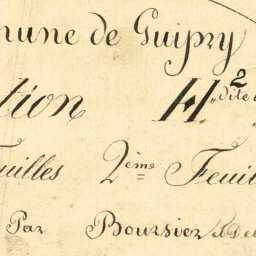 mune de Guipry
tion H.² dite
euilles 2ème Feuil
Par Boursier